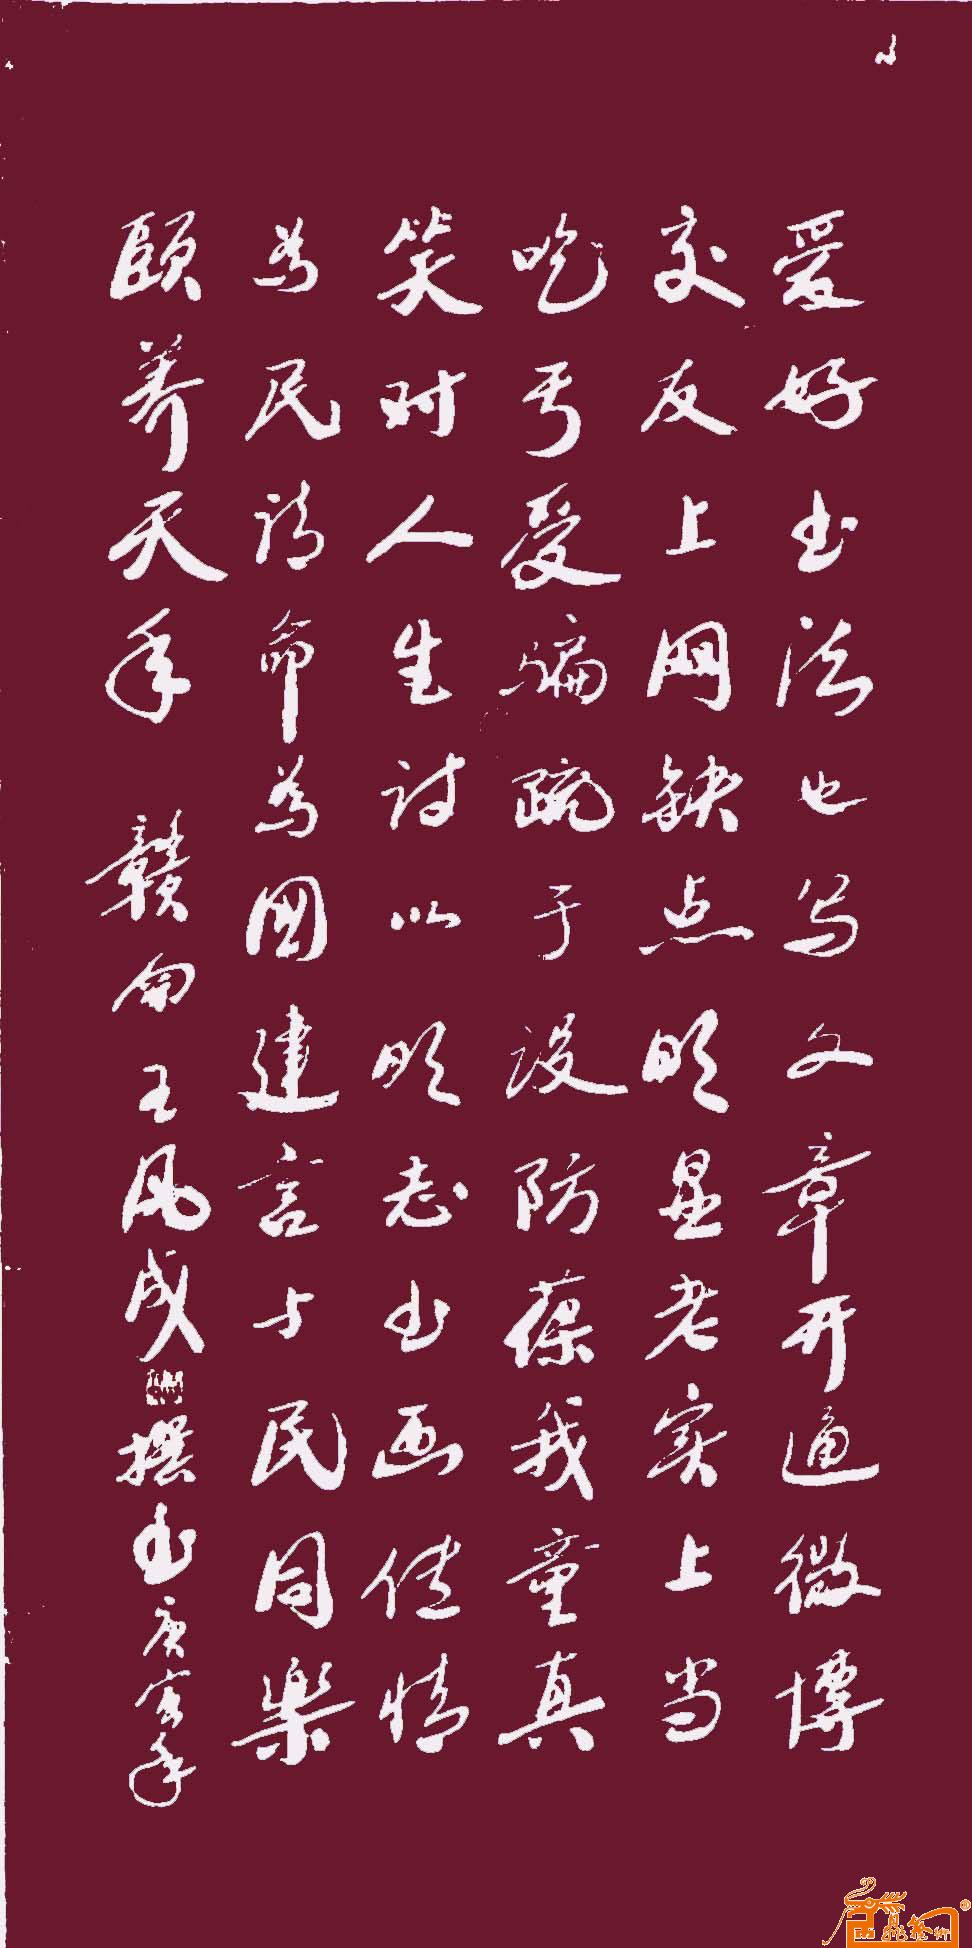 爱好书法也写文章开通微博
交友上网缺点明显老实上当
吃亏受骗疏于设防葆我童真
笑对人生诗以明志书画传情
为民请命为国建言与民同乐
颐养天年 赣南王风成撰书庚寅年